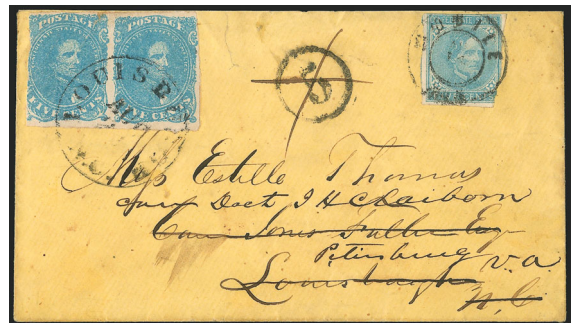 POSTAGE POSTAGE
FIVE CENTS FIVE CENTS
LOUISB
MOBILE
5
Miss Estelle Thomas
care Doct J H Claiborn
Care Jones Fuller Esq
Petersburg V.a.
Louisburgh
N.C